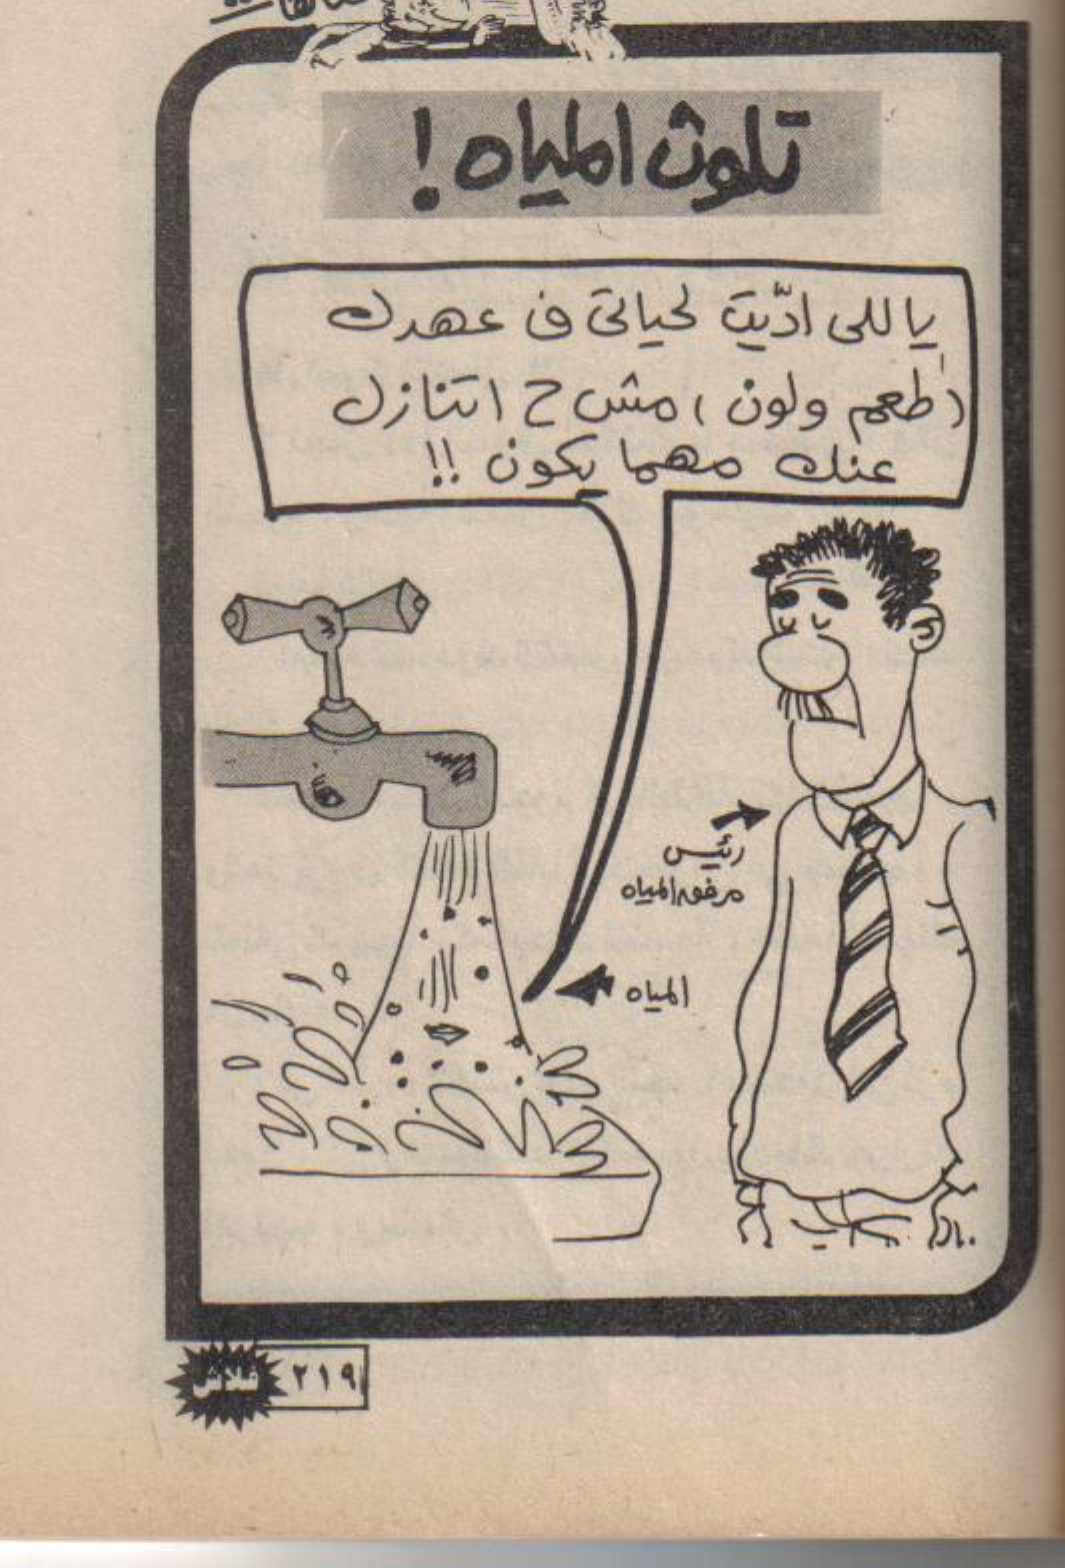 تلوث المياه!
ياللى ادّيت لحياتى ف عهدك
(طعم ولون) مش ح اتنازل
عنك مهما يكون !!
رئيس
مرفق المياه
المياه
٢١٩